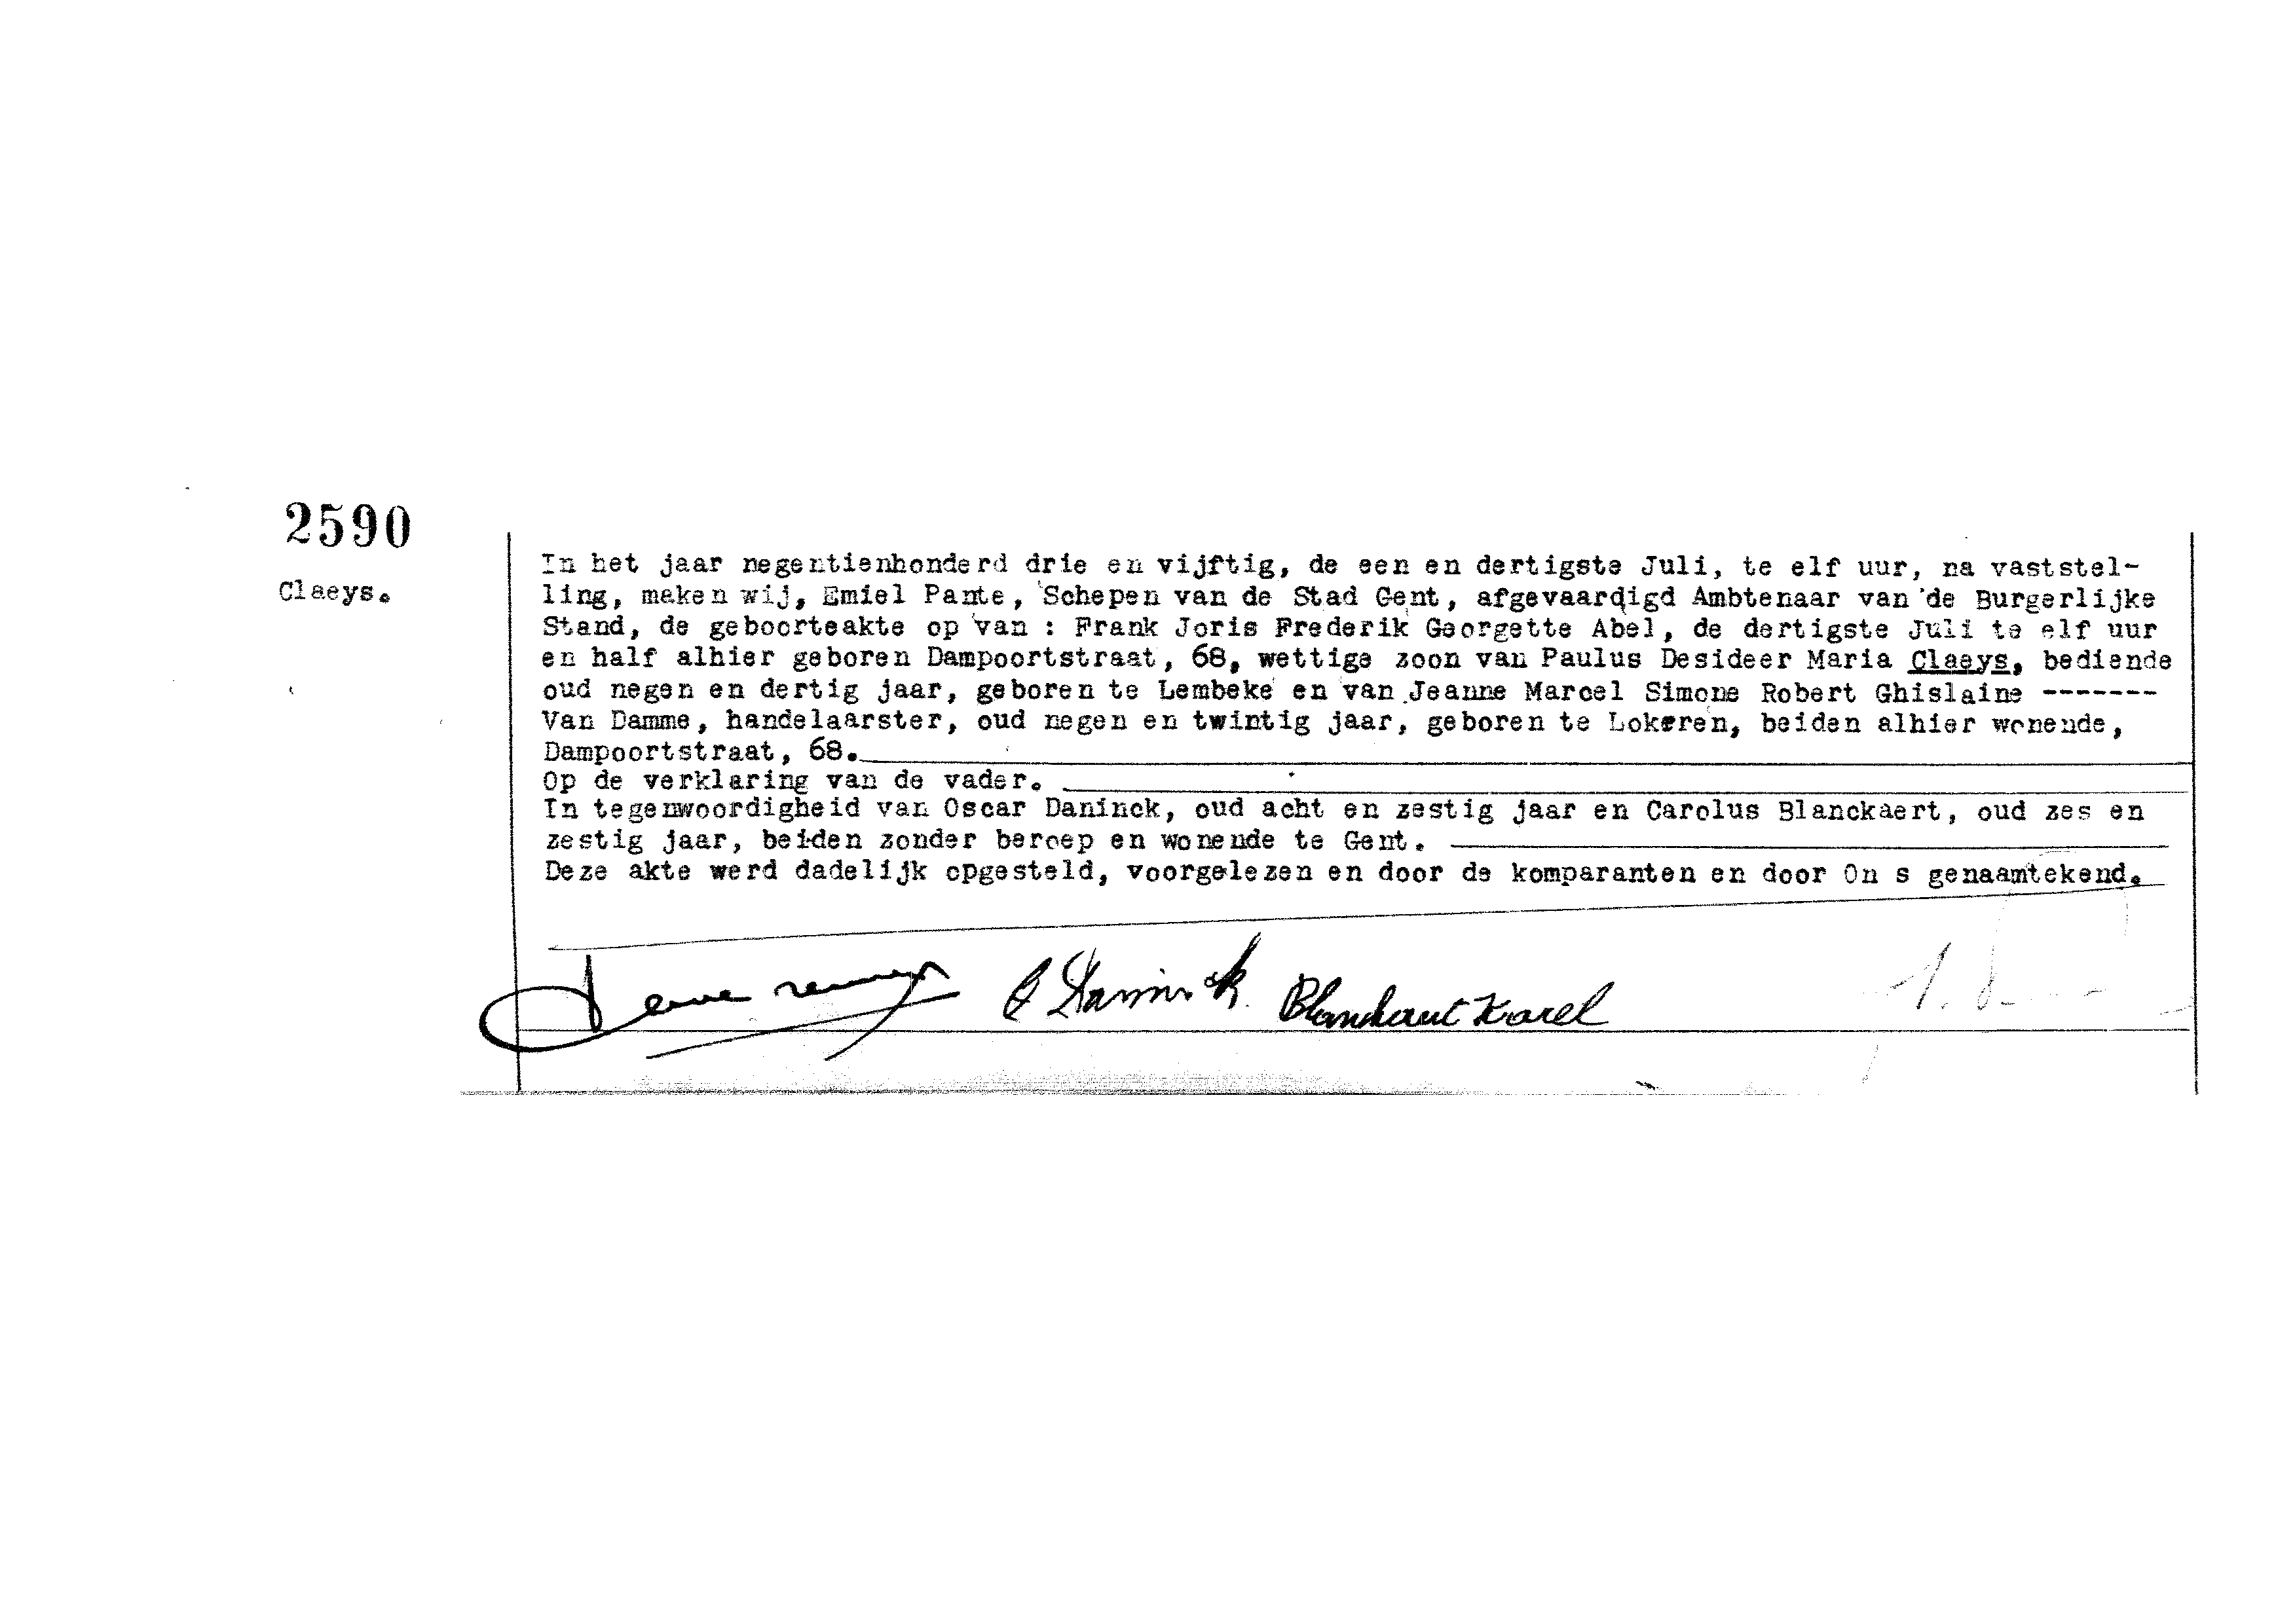 2590
Claeys.
In het jaar negentienhonderd drie en vijftig, de een en dertigste Juli, te elf uur, na vaststel-
ling, maken wij, Emiel Pante, Schepen van de Stad Gent, afgevaardigd Ambtenaar van de Burgerlijke
Stand, de geboorteakte op van : Frank Joris Frederik Georgette Abel, de dertigste Juli te elf uur
en half alhier geboren Dampoortstraat, 68, wettige zoon van Paulus Desideer Maria Claeys, bediende
oud negen en dertig jaar, geboren te Lembeke en van Jeanne Marcel Simone Robert Ghislaine -------
Van Damme, handelaarster, oud negen en twintig jaar, geboren te Lokeren, beiden alhier wonende,
Dampoortstraat, 68.
Op de verklaring van de vader.
In tegenwoordigheid van Oscar Daninck, oud acht en zestig jaar en Carolus Blanckaert, oud zes en
zestig jaar, beiden zonder beroep en wonende te Gent.
Deze akte werd dadelijk opgesteld, voorgelezen en door de komparanten en door On s genaamtekend.
Daninck Blanckaert Karel